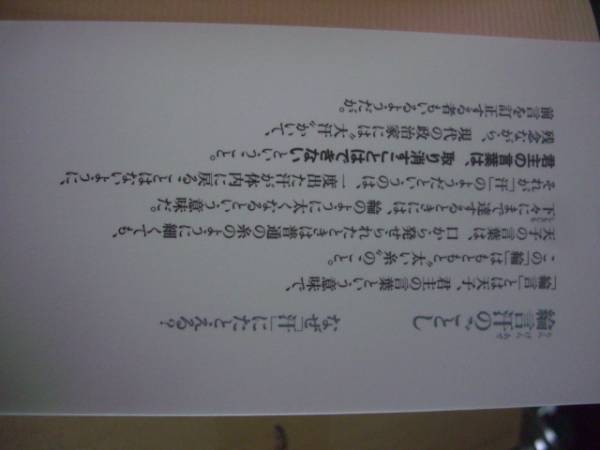 りんげんあせ
綸言汗のごとし
なぜ「汗」にたとえる?
「綸言」とは天子、君主の言葉という意味で、
この「綸」はもともと“太い糸”のこと。
天子の言葉は、口から発せられたときは普通の糸のように細くても、
下々にまで達するときには、綸のように太くなるという意味だ。
それが「汗」のようだというのは、一度出た汗が体内に戻ることはないように、
君主の言葉は、取り消すことはできないということ。
残念ながら、現代の政治家には“大汗”かいて、
前言を訂正する者もいるようだが。